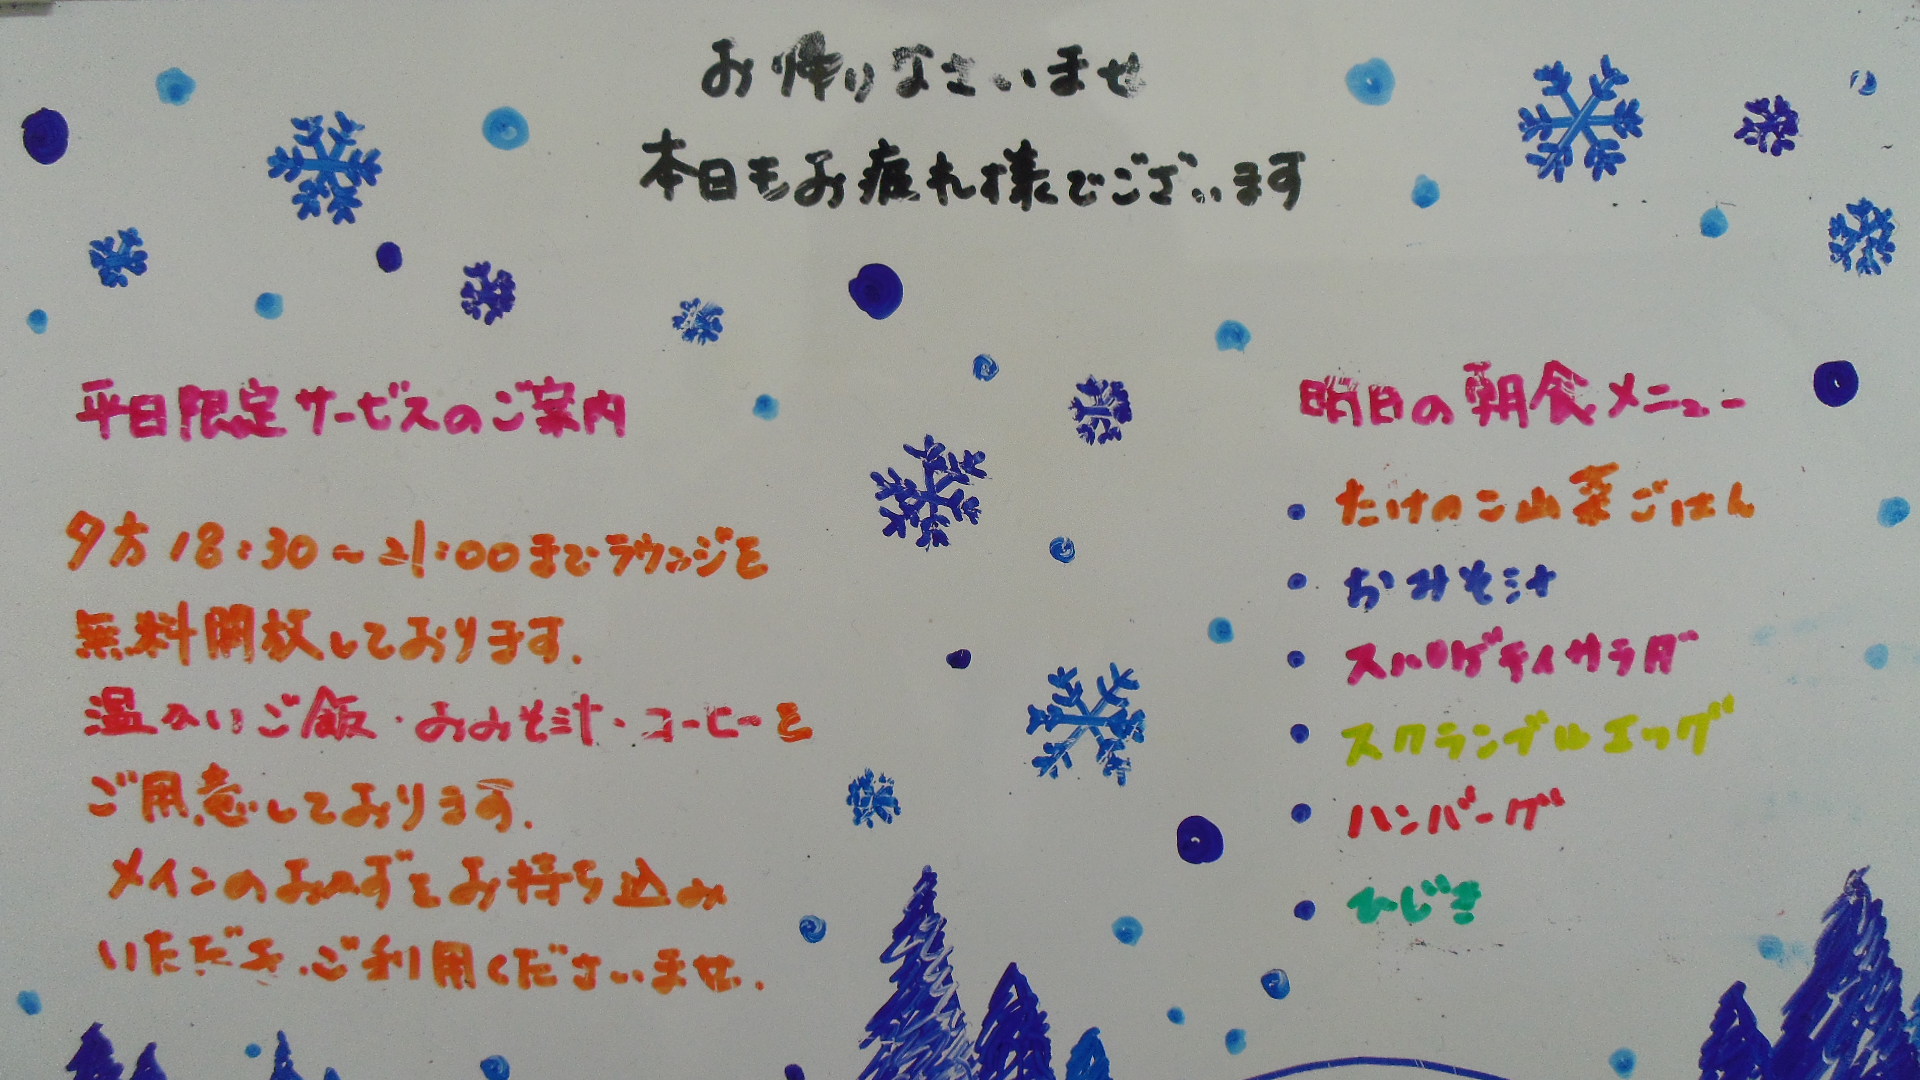 お帰りなさいませ
本日もお疲れ様でございます
平日限定サービスのご案内
夕方18:30～21:00までラウンジを
無料開放しております.
温かいご飯・おみそ汁・コーヒーを
ご用意しております.
メインのおかずをお持ち込み
いただき、ご利用くださいませ.
明日の朝食メニュー
・たけのこ山菜ごはん
・おみそ汁
・スパゲティサラダ
・スクランブルエッグ
・ハンバーグ
・ひじき